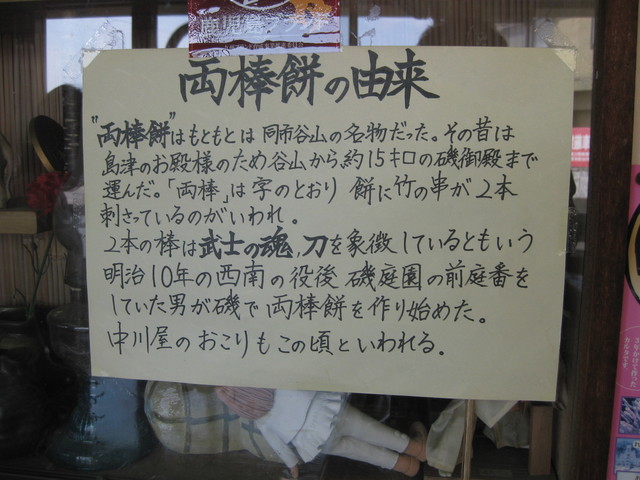 鹿児島ブランド
両棒餅の由来
"両棒餅"はもともとは同市谷山の名物だった。その昔は
島津のお殿様のため谷山から約15キロの磯御殿まで
運んだ。「両棒」は字のとおり 餅に竹の串が2本
刺さっているのがいわれ。
2本の棒は武士の魂,刀を象徴しているともいう
明治10年の西南の役後 磯庭園の前庭番を
していた男が磯で両棒餅を作り始めた。
中川屋のおこりもこの頃といわれる。